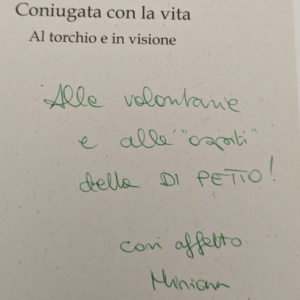 Coniugata con la vita
Al torchio e in visione
Alle volontarie
e alle "ospiti"
della DI PETTO!
con affetto
Miriam